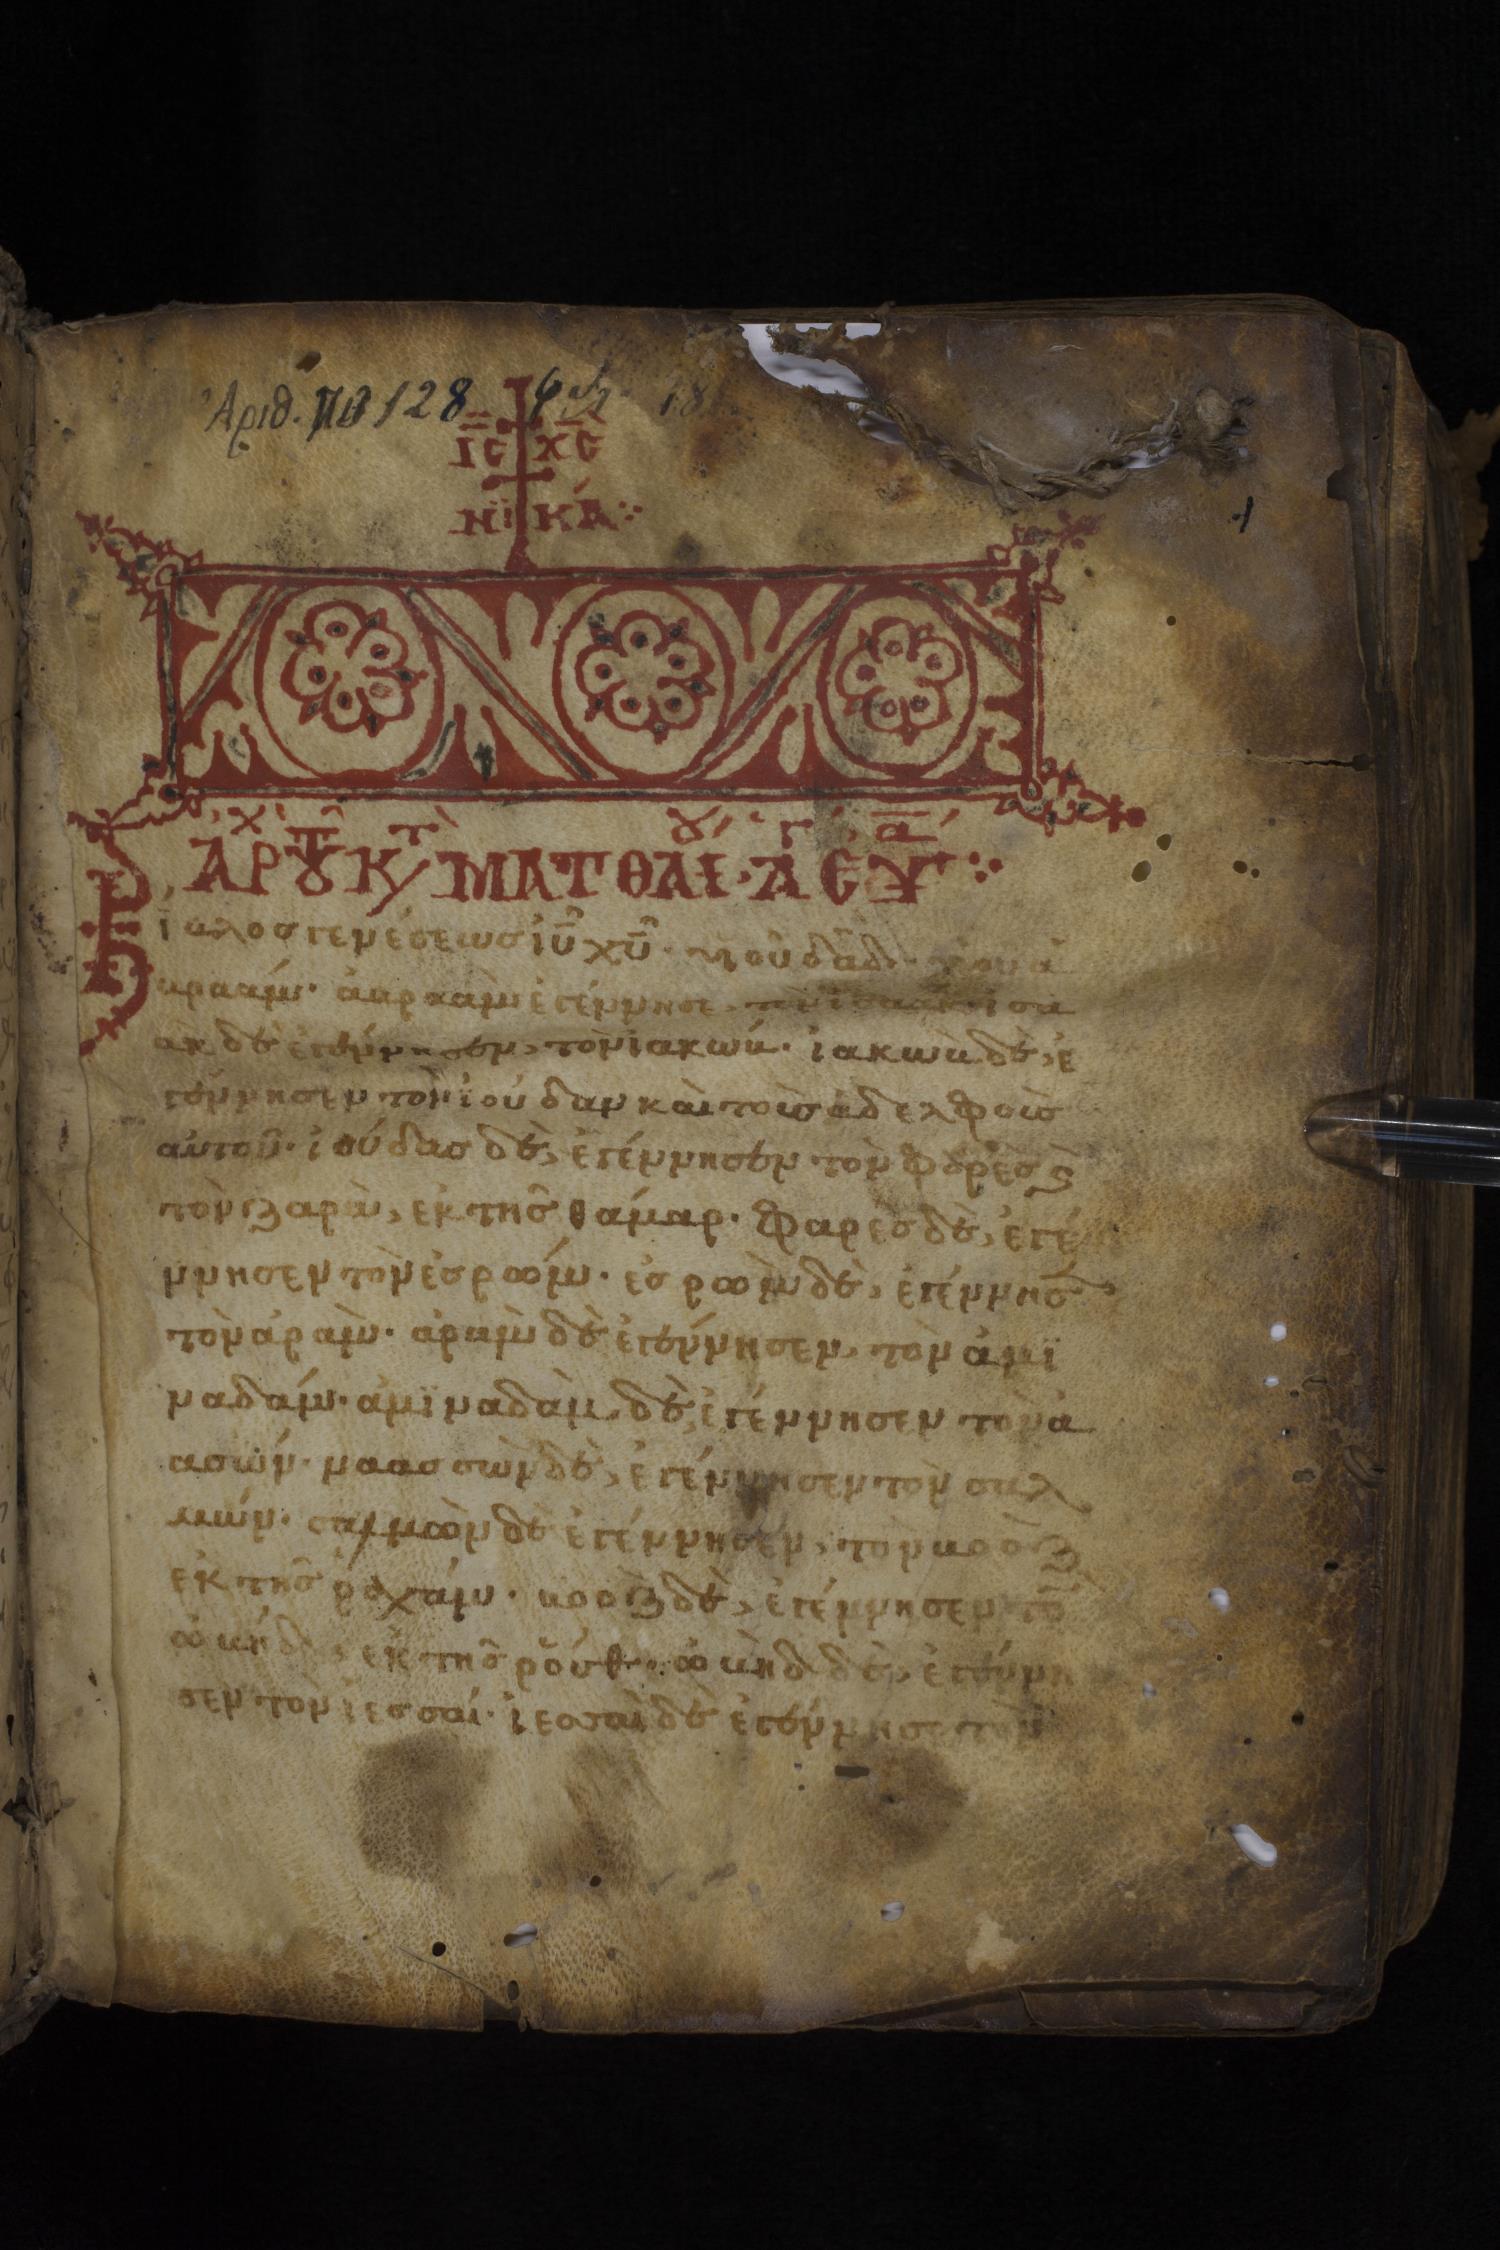 Ἀριθ. 128
ΙΣ ΧΣ
ΝΙ ΚΑ
ἈΡΧ ΤΟΥ Κ ΜΑΤΘΑΙ ἉΓ ΕΥ
Βίβλος γενέσεως ἰῦ χῦ· υἱοῦ δαδ· υἱοῦ ἀ
βραάμ· ἀβραὰμ ἐγέννησε, τὸν ἰσαάκ· ἰσα
ὰκ δὲ ἐγέννησεν, τὸν ἰακώβ· ἰακὼβ δὲ, ἐ
γέννησεν τὸν ἰούδαν καὶ τοὺς ἀδελφοὺς
αὐτοῦ· ἰούδας δὲ, ἐγέννησεν τὸν φαρὲς ϗ
τὸν ζαρὰ, ἐκ τῆς θάμαρ· φαρες δὲ, ἐγέ
ννησεν τὸν ἐσρώμ· ἐσρὼμ δὲ, ἐγέννησ
τὸν ἀράμ· ἀρὰμ δὲ ἐγέννησεν, τὸν ἀμϊ
ναδάμ· ἀμϊναδὰμ δὲ, ἐγέννησεν τὸν ἀ
ασών· ναασσὼν δὲ, ἐγέννησεν τὸν σαλ
μών· σαλμὼν δὲ ἐγέννησεν, τὸν βοὸζ
ἐκ τῆς ῥαχάμ· βοὸζ δὲ, ἐγέννησεν τὸ
ὠβήδ, ἐκ τῆς ῥούθ· ὠβὴδ δὲ, ἐγέννη
σεν τὸν ἰεσσαί· ἰεσσαὶ δὲ ἐγέννησε τὸν